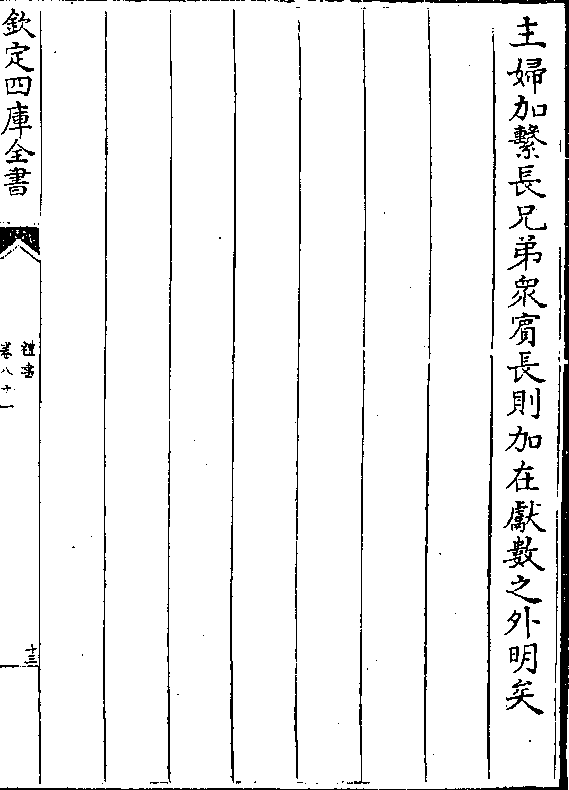 主婦加繫長兄弟衆賓長則加在獻數之外明矣
欽定四庫全書
禮書
卷八十一
十三